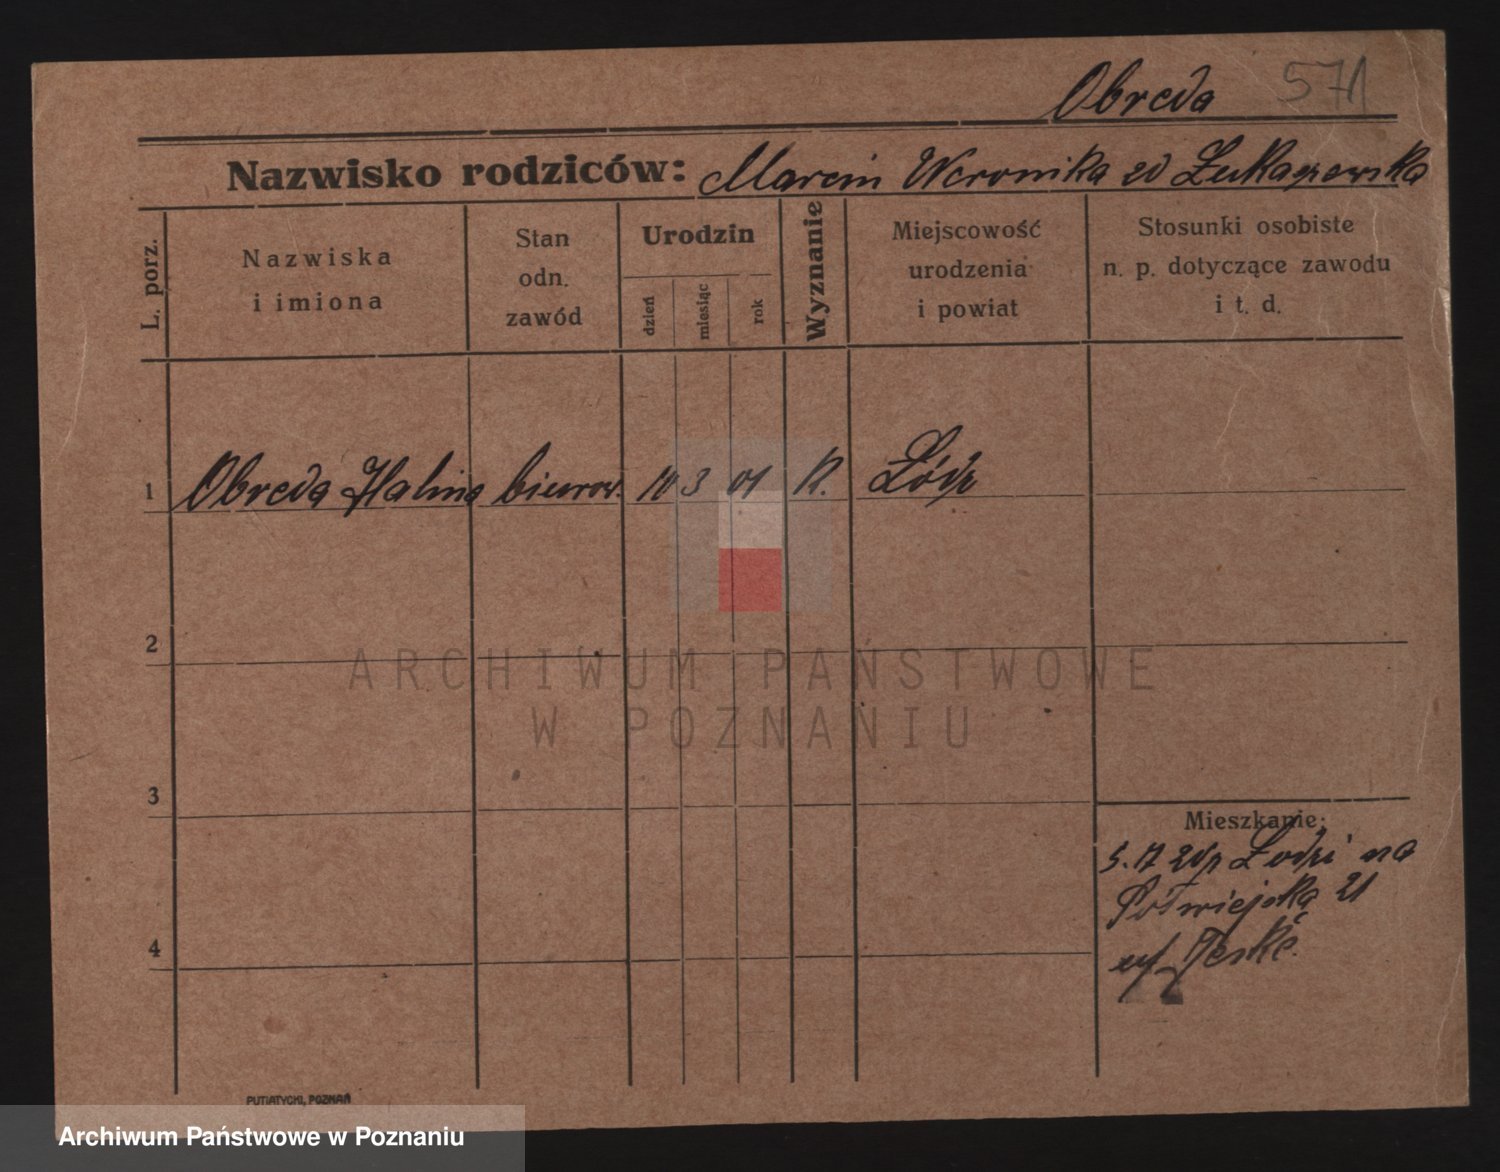 Obreda 571
Nazwisko rodziców: Marcin Weronika zd Łukaszewska
L. porz.
Nazwiska
i imiona
Stan
odn.
zawód
Urodzin
dzień
miesiąc
rok
Wyznanie
Miejscowość
urodzenia
i powiat
Stosunki osobiste
n. p. dotyczące zawodu
i t. d.
1 Obreda Halina biurow. 10 3 01 K. Łódź
2
ARCHIWUM PAŃSTWOWE
W POZNANIU
3
Mieszkanie:
Łodzi na
Półwiejską 21
4
PUTIATYCKI, POZNAŃ
Archiwum Państwowe w Poznaniu